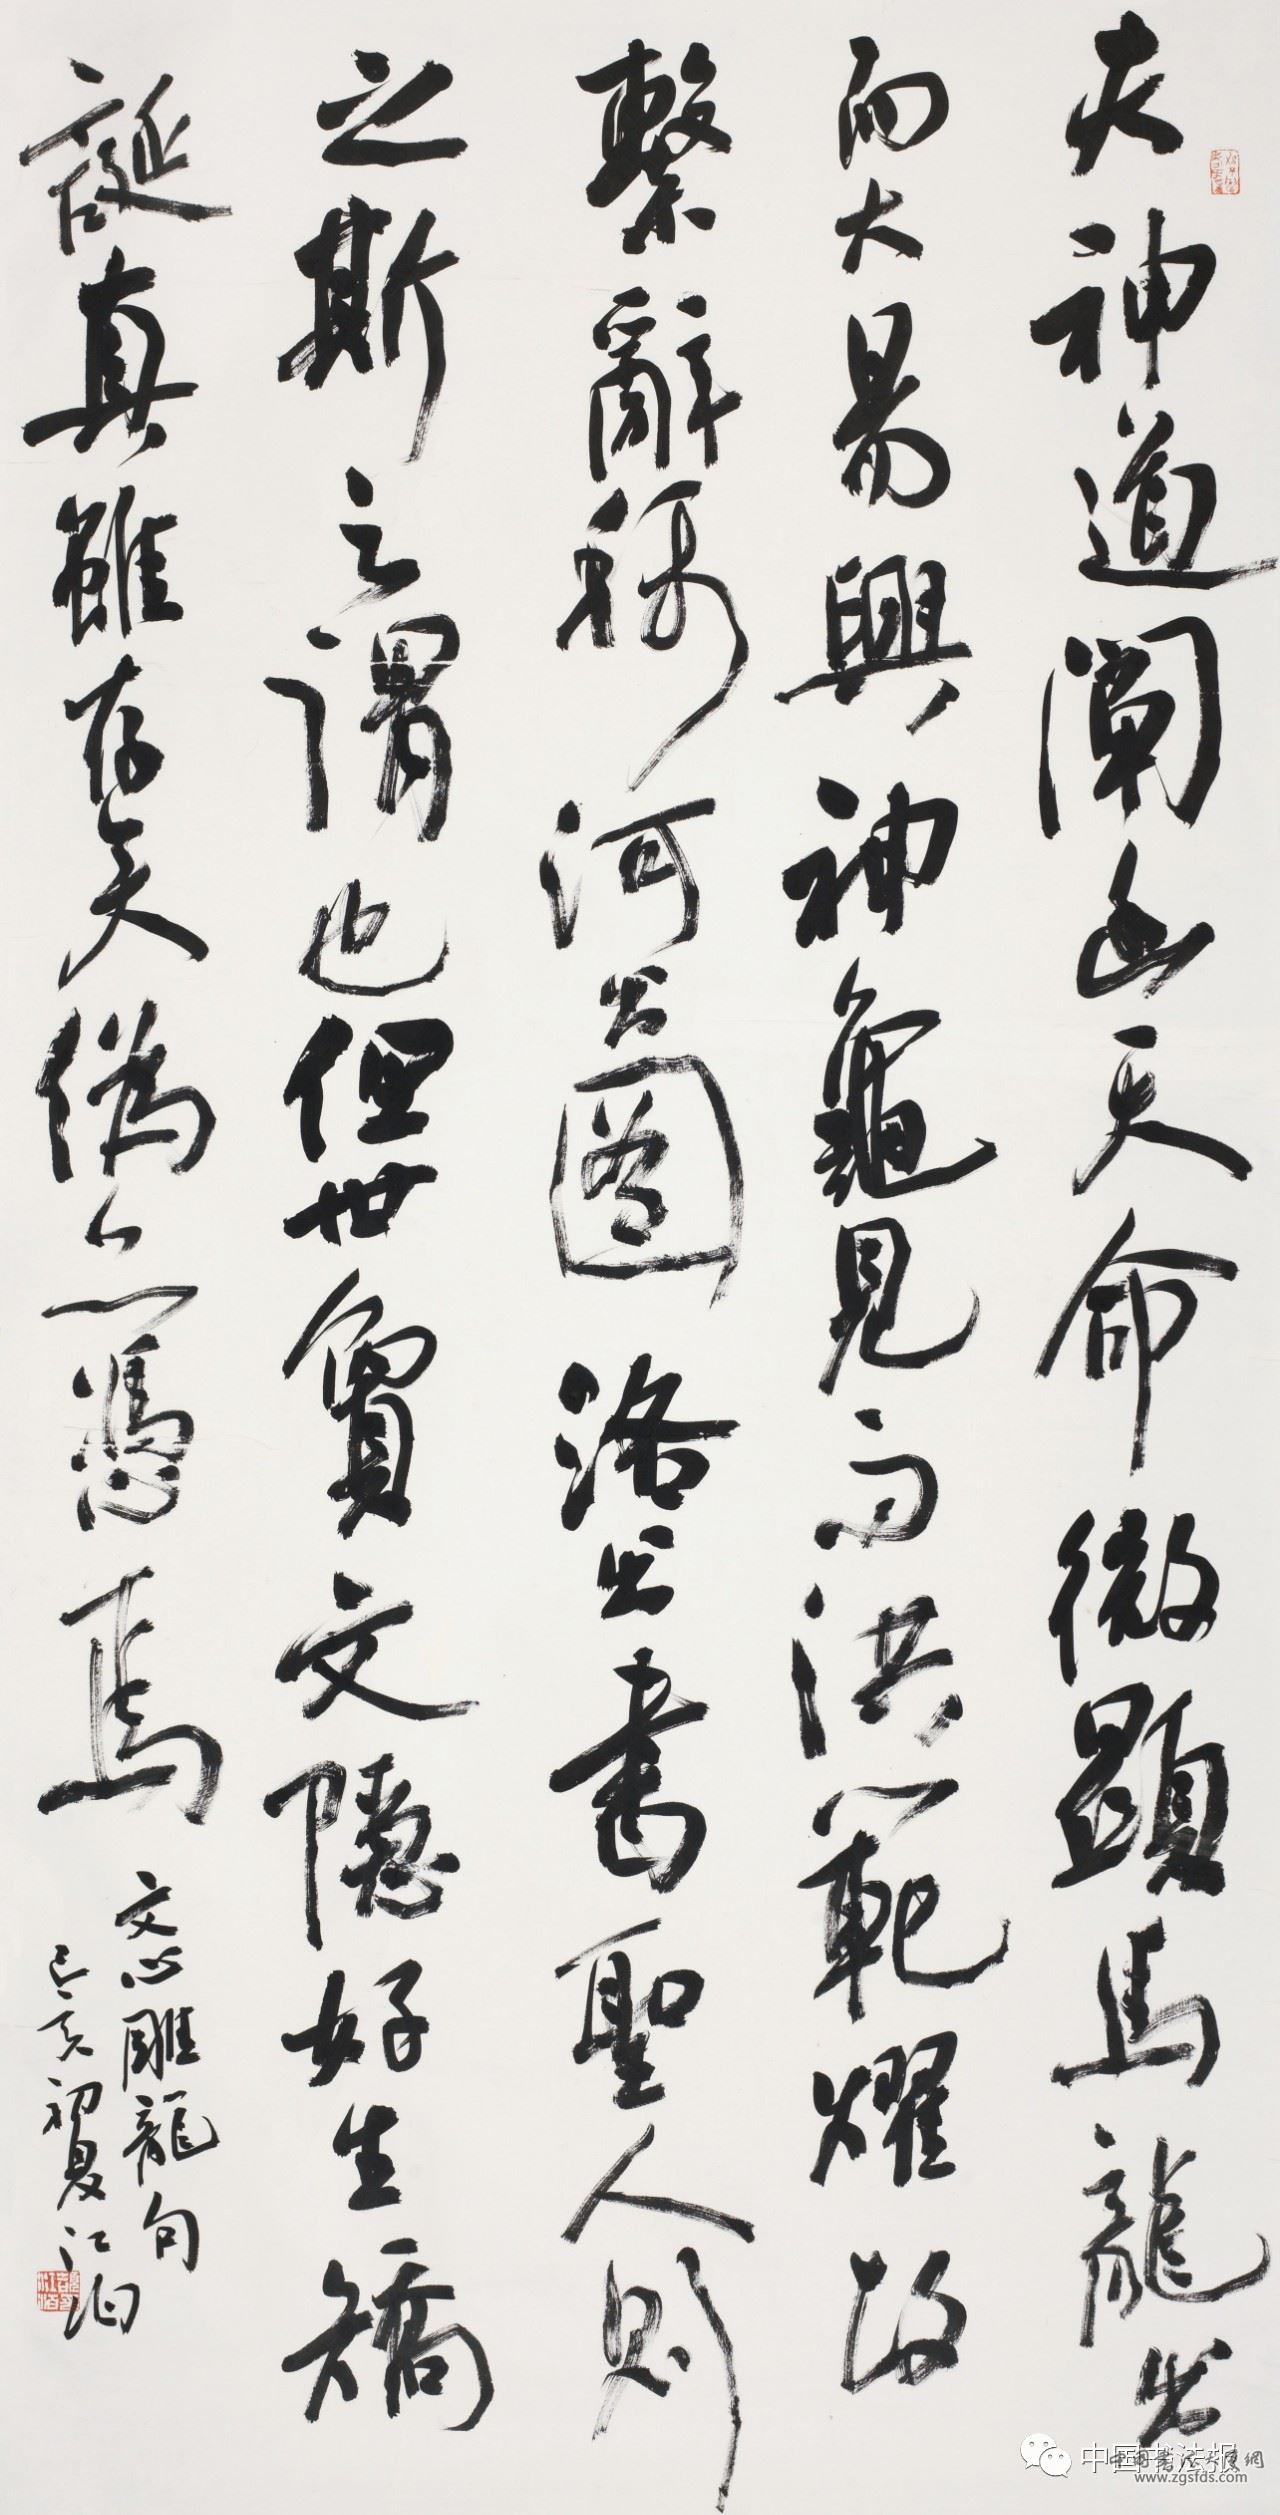 夫神道闡幽天命微顯馬龍出
而大易興神龜見而洪範耀故
繫辭稱河出圖洛出書聖人則
之斯之謂也但世敻文隱好生矯
誕真雖存矣偽亦憑焉
文心雕龍句
己亥初夏江泊
中国书法报
www.zgsfds.com